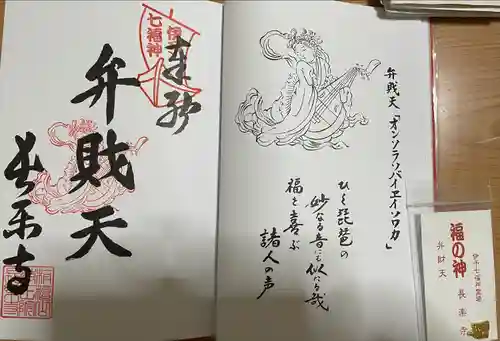 七福神
奉拝
弁財天
長楽寺
弁財天「オンソラソバイエイソワカ」
ひく琵琶の
妙なる音にも似たる哉
福を喜ぶ
諸人の声
伊予七福神霊場
福の神
長楽寺
弁財天